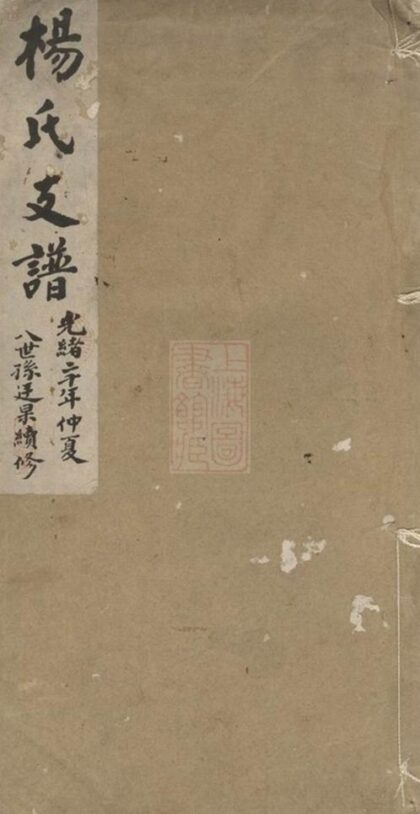 楊氏支譜
光緒二十年仲夏
八世孫廷杲續修
上海圖
書館藏